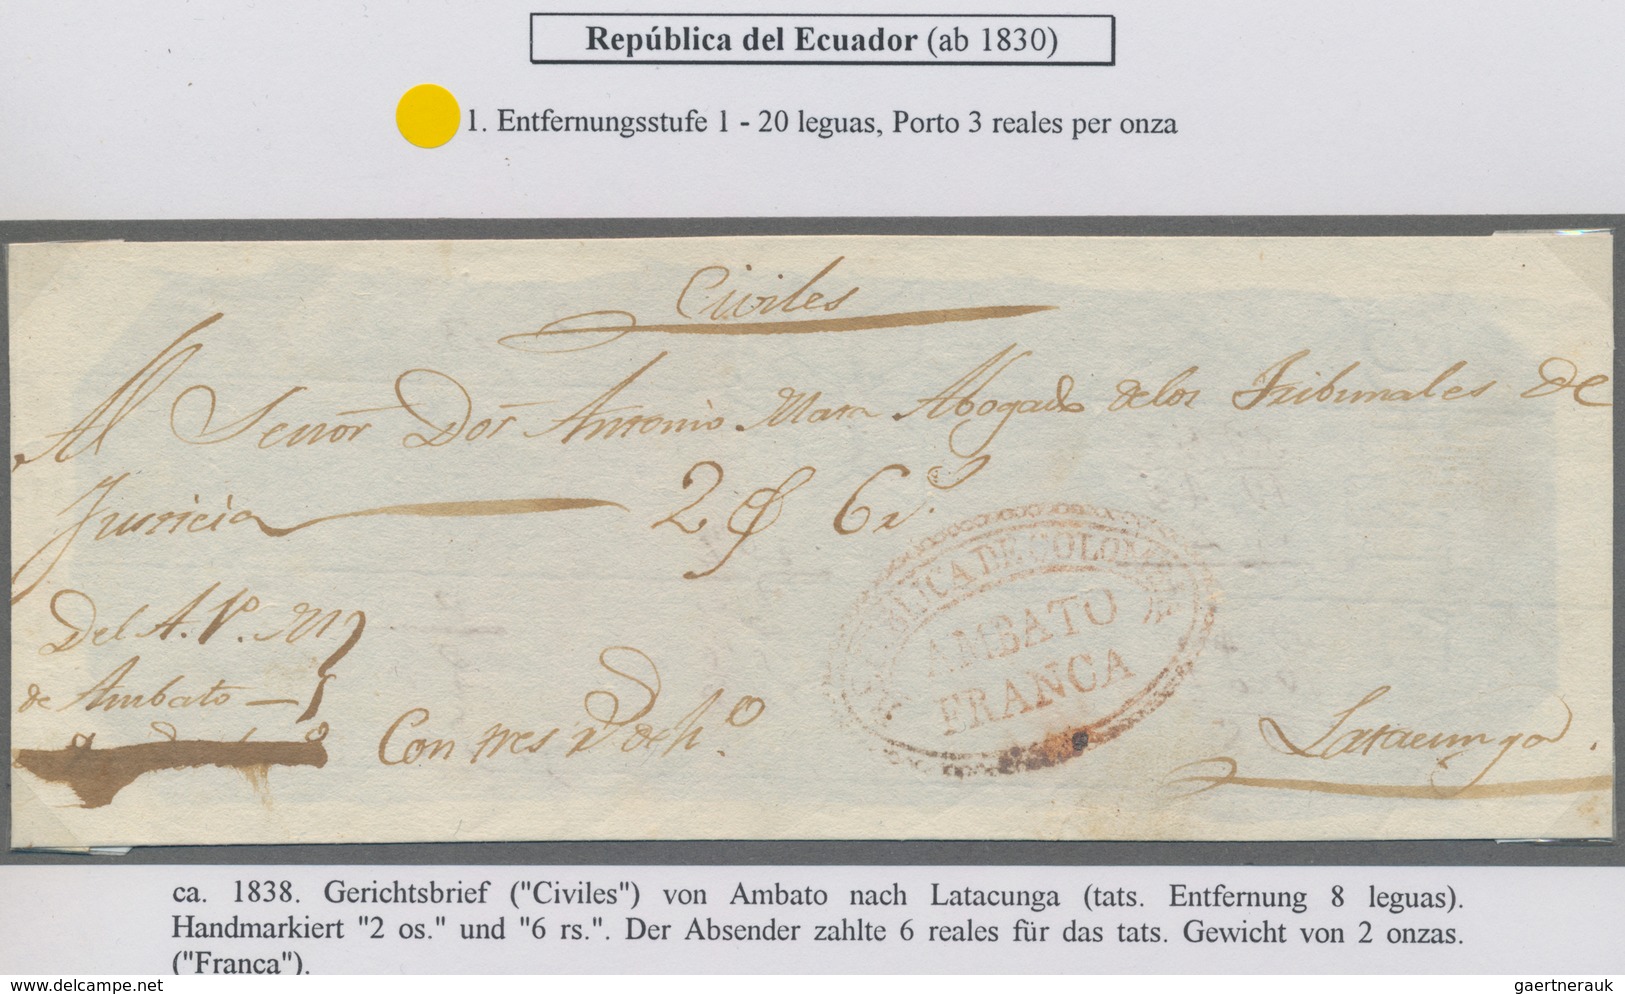 República del Ecuador (ab 1830)
1. Entfernungsstufe 1 - 20 leguas, Porto 3 reales per onza
Civiles
Al Señor Dor Antonio Mara Abogado delos Tribunales de
Justicia 2 6 rs
REPUBLICA DE COLOMBIA
AMBATO
FRANCA
Del A. Po. M
de Ambato
Con tres
Latacunga.
ca. 1838. Gerichtsbrief ("Civiles") von Ambato nach Latacunga (tats. Entfernung 8 leguas).
Handmarkiert "2 os." und "6 rs.". Der Absender zahlte 6 reales für das tats. Gewicht von 2 onzas.
("Franca").
www.delcampe.net
gaertnerauk